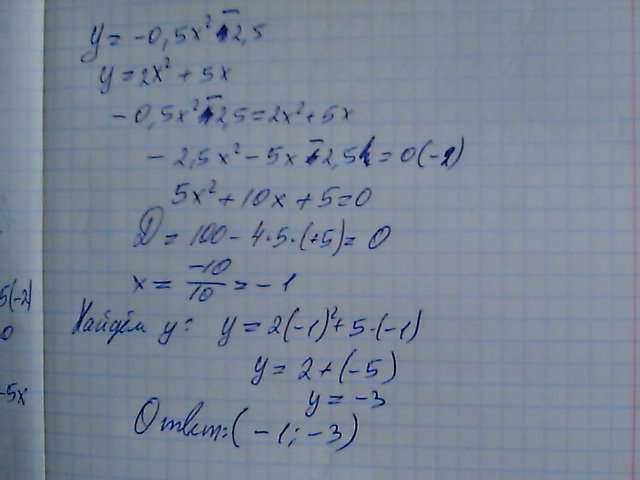 y = -0,5x² - 2,5
y = 2x² + 5x
-0,5x² - 2,5 = 2x² + 5x
-2,5x² - 5x - 2,5 = 0 (-2)
5x² + 10x + 5 = 0
D = 100 - 4·5·(+5) = 0
x = -10/10 = -1
Найдём y: y = 2(-1)² + 5·(-1)
y = 2 + (-5)
y = -3
Ответ: (-1; -3)
5(-2)
0
-5x